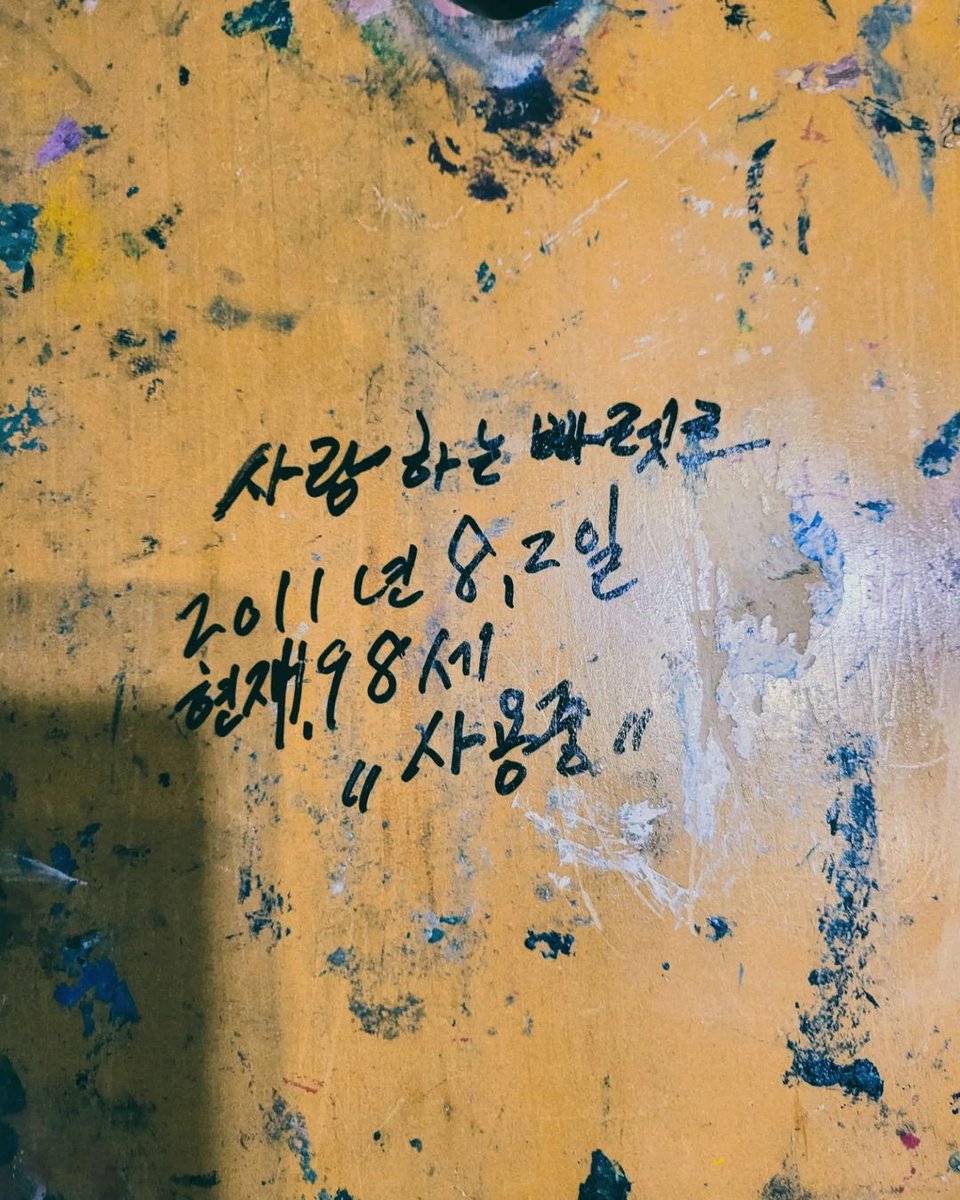 사랑하는 빠렛트
2011년 8,2일
현재.98세
"사용중"